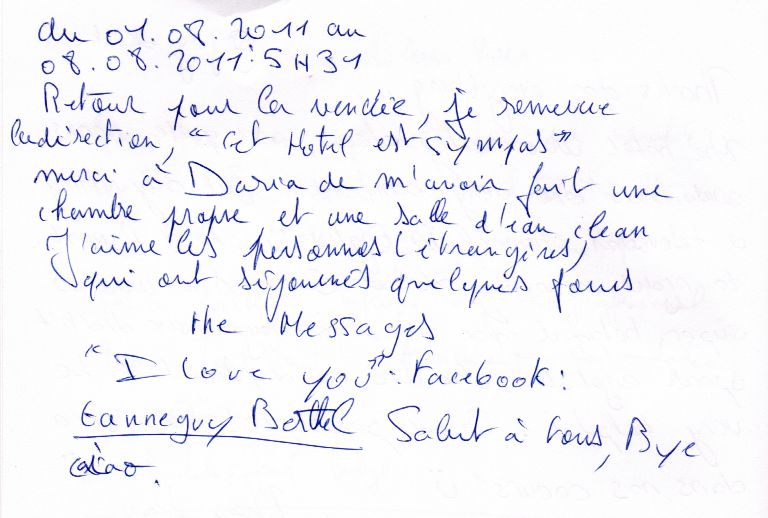 du 01.08.2011 au
08.08.2011: 5H31
Retour pour la vendée, je remercie
la direction, "cet Hotel est sympas"
merci à Daria de m'avoir fait une
chambre propre et une salle d'eau clean
J'aime les personnes (étrangères)
qui ont séjournés quelques jours
the Messages
"I love you". Facebook:
Tanneguy Berthel Salut à tous, Bye
ciao.